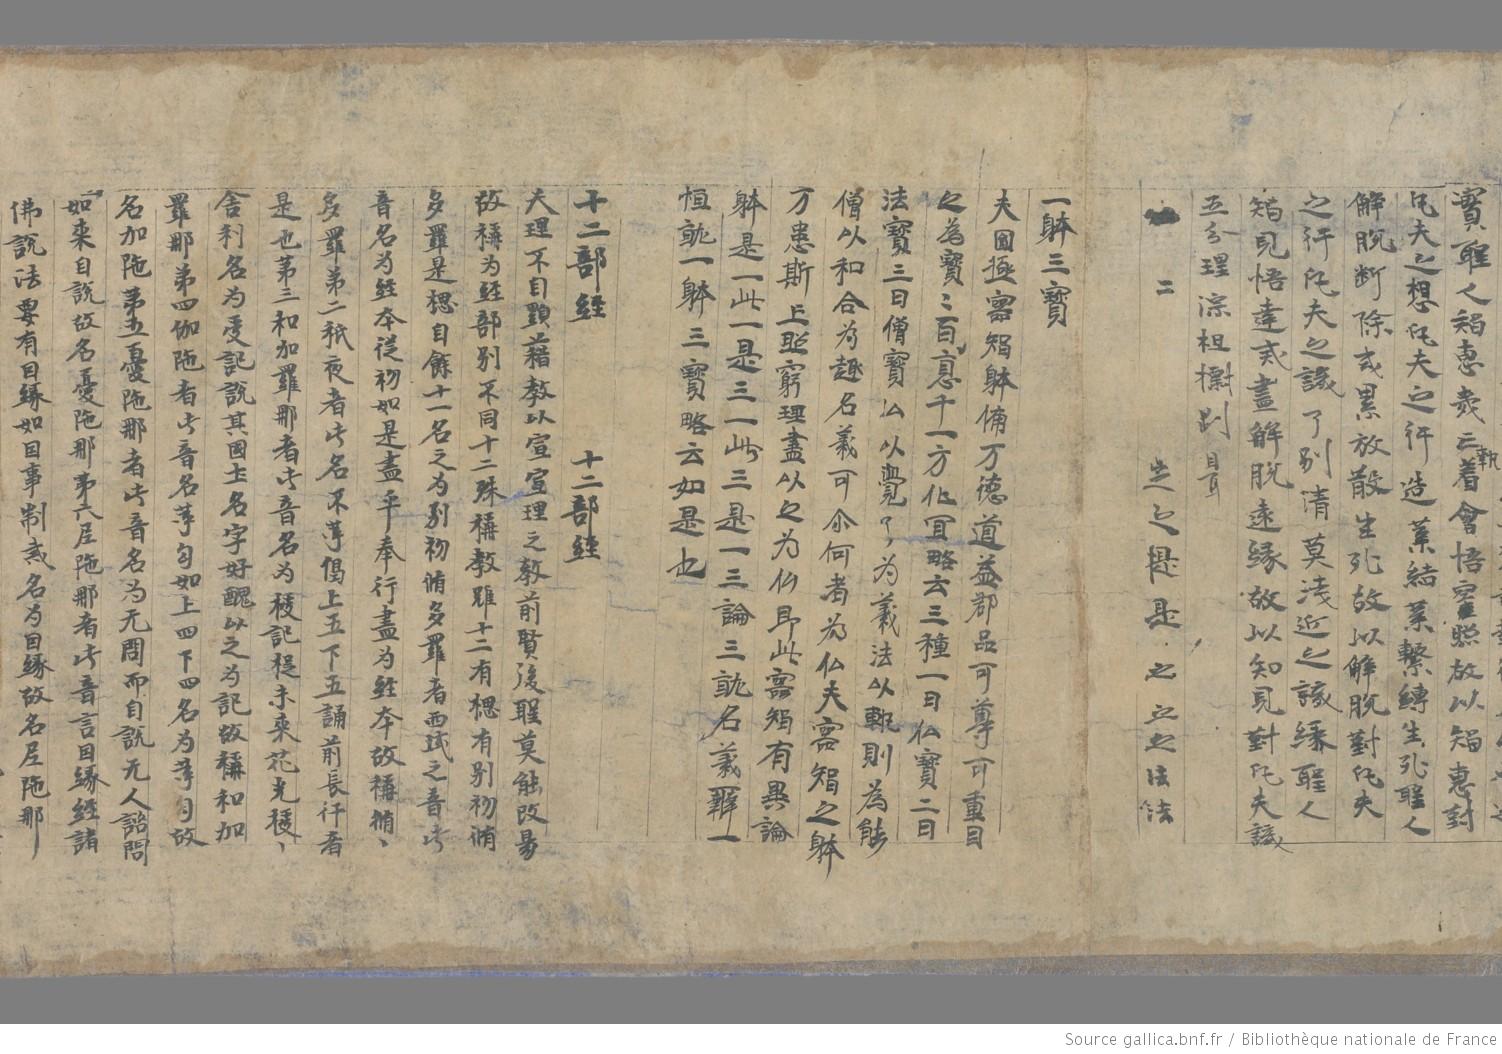 寶聖人智惠歲亡着會悟空照故以智惠對
凡夫之想凡夫之行造業結業繫縛生死聖人
解脫斷除或累放散生死故以解脫對凡夫
之行凡夫之識了別清莫淺近之識緣聖人
知見悟達或盡解脫遠緣故以知見對凡夫識
五分理深相
二 之 是之立之法法
一躰三寶
夫圓極靈智躰備万德道益郡品可尊可重目
之為寶〻百億千一方化冝略云三種一曰仏寶二曰
法寶三曰僧寶仏以覺了為義法以軌則為能
僧以和合為趣名義可尒何者為仏夫靈智之躰
万患斯上照窮理盡以之為仏即此靈智有異論
躰是一此一是三一此三是一三論三就名義辭一
恒就一躰三寶略云如是也
十二部經 十二部經
夫理不自顯藉教以宣宣理之教前賢後聖莫能改易
故稱為經部別不同十二殊稱教雖十二有揔有別初脩
多羅是揔自餘十一名之為別初脩多羅者西域之音此
音名為經本從初如是盡乎奉行盡為經本故稱脩〻
多羅弟二祇夜者此名不等偈上五下五誦前長行者
是也苐三和加羅那者此音名為授記授未來花光授〻
舍利名為受記說其國土名字好醜以之為記故稱和加
羅那苐四伽陁者此音名等句如上四下四名為等句故
名加陁苐五憂陁那者此音名為无問而自說无人諮問
如來自說故名憂陁那苐六尼陁那者此音言因緣經諸
佛說法要有因緣如因事制戒名為因緣故名尼陁那
Source gallica.bnf.fr / Bibliothèque nationale de France